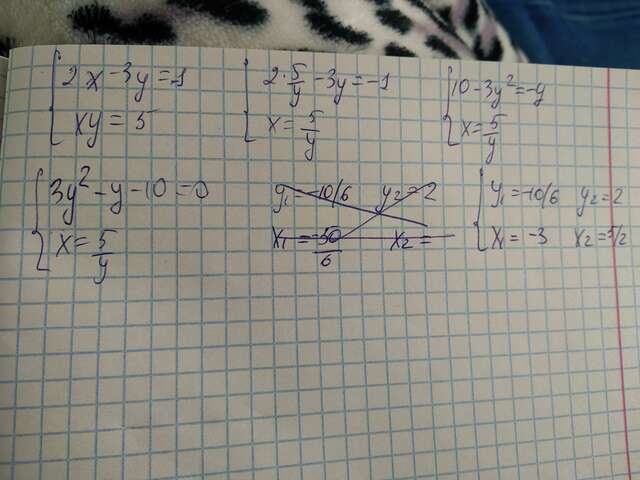 2x-3y=1
xy=5
2·5/y-3y=-1
x=5/y
10-3y²=-y
x=5/y
3y²-y-10=0
x=5/y
y₁=-10/6 y₂=2
x₁=-50/6 x₂=
y₁=-10/6 y₂=2
x₁=-3 x₂=5/2